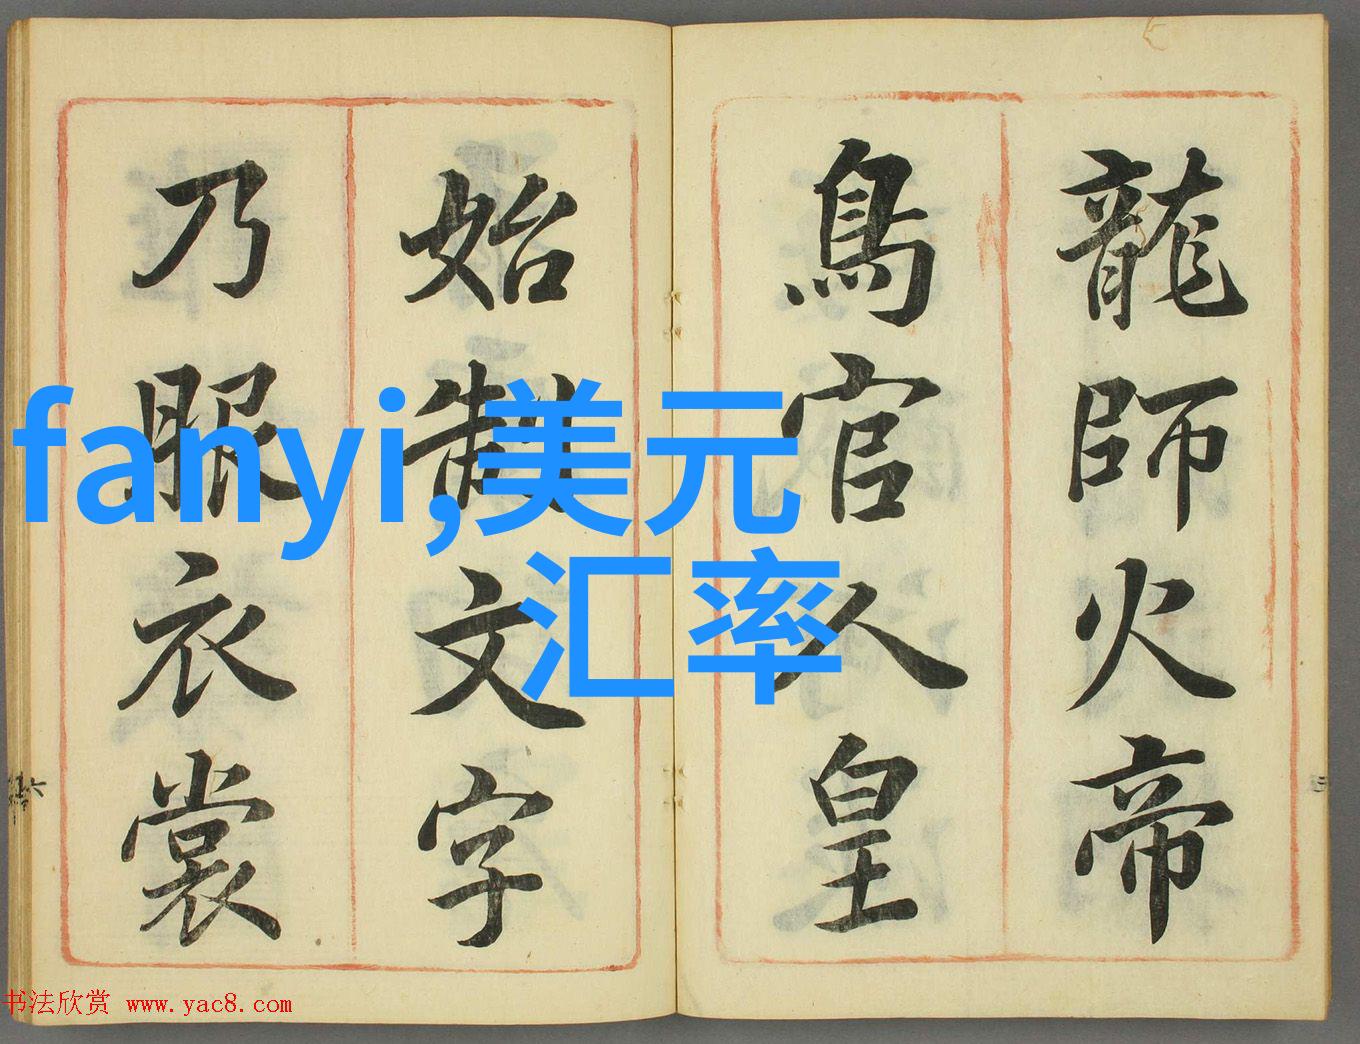 龍師火帝
鳥官人皇
始制文字
乃服衣裳
fanyi,美元
汇率
书法欣赏 www.yac8.com